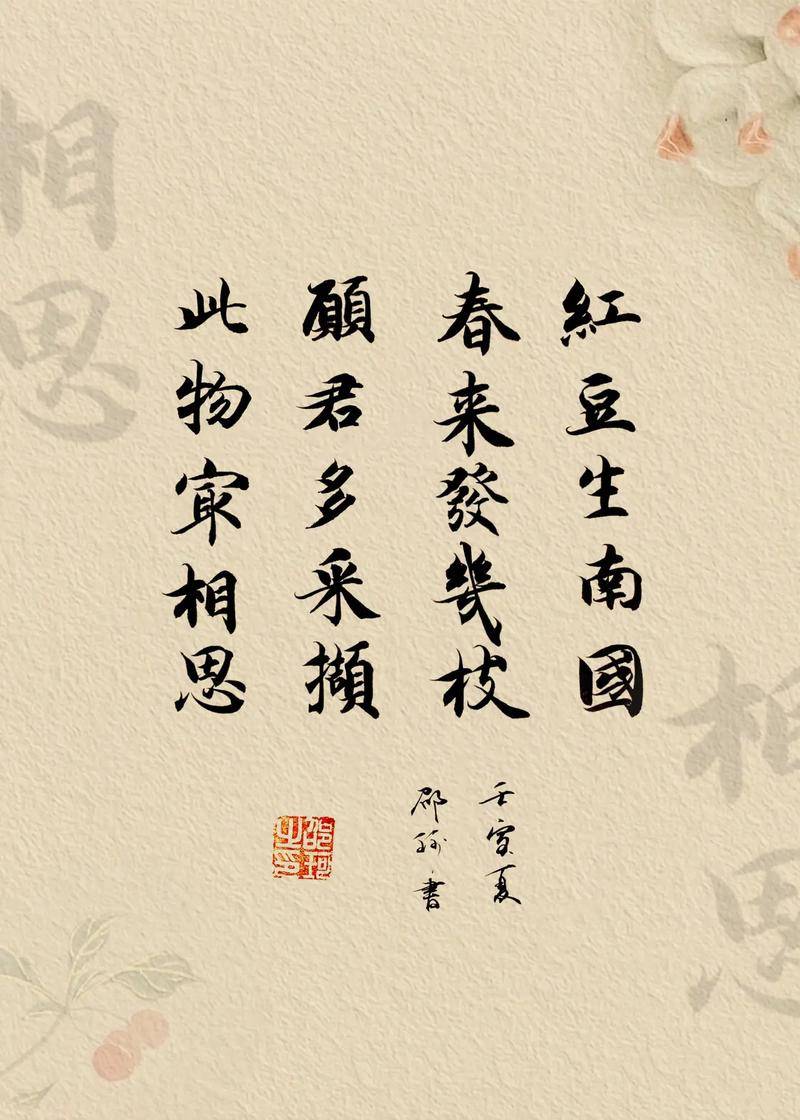 紅豆生南國
春来發幾枝
願君多采擷
此物冣相思
壬寅夏
邵珩書
相思
相思